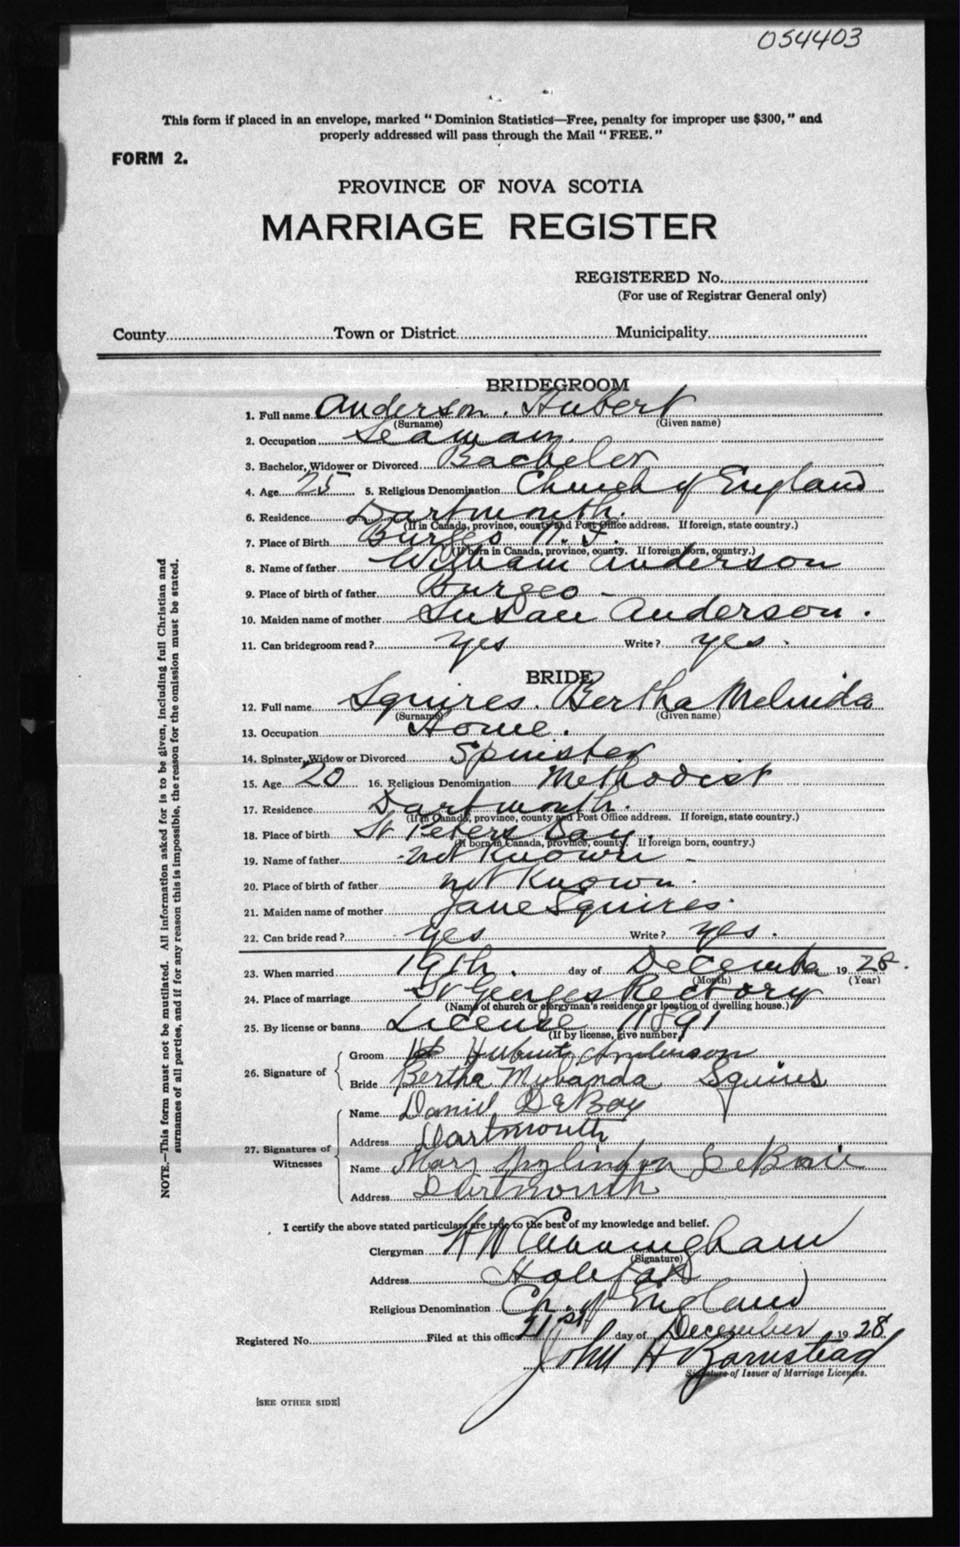 054403
This form if placed in an envelope, marked "Dominion Statistics—Free, penalty for improper use $300," and
properly addressed will pass through the Mail "FREE."
FORM 2.
PROVINCE OF NOVA SCOTIA
MARRIAGE REGISTER
REGISTERED No.
(For use of Registrar General only)
County Town or District Municipality
BRIDEGROOM
1. Full name Anderson. Hubert
(Surname) (Given name)
2. Occupation Seaman.
3. Bachelor, Widower or Divorced Bachelor
4. Age 25 5. Religious Denomination Church of England
6. Residence Dartmouth.
(If in Canada, province, county and Post Office address. If foreign, state country.)
7. Place of Birth Burgeo N.F.
(If born in Canada, province, county. If foreign born, country.)
8. Name of father William Anderson
9. Place of birth of father Burgeo -
10. Maiden name of mother Susan Anderson.
11. Can bridegroom read? yes Write? yes.
BRIDE
12. Full name Squires. Bertha Melinda
(Surname) (Given name)
13. Occupation Home.
14. Spinster, Widow or Divorced Spinster
15. Age 20 16. Religious Denomination Methodist
17. Residence Dartmouth.
(If in Canada, province, county and Post Office address. If foreign, state country.)
18. Place of birth St Peters Bay.
(If born in Canada, province, county. If foreign born, country.)
19. Name of father - not Known -
20. Place of birth of father not Known.
21. Maiden name of mother Jane Squires.
22. Can bride read? yes Write? yes.
23. When married 19th. day of December 1928.
(Month) (Year)
24. Place of marriage St Georges Rectory
(Name of church or clergyman's residence or location of dwelling house.)
25. By license or banns License 11891
(If by license, give number)
26. Signature of
Groom Hubert Anderson
Bride Bertha Squires
27. Signatures of Witnesses
Name Daniel DeBay
Address Dartmouth
Name Mary
Address Dartmouth
I certify the above stated particulars are true to the best of my knowledge and belief.
Clergyman Cunningham
(Signature)
Address Halifax
Religious Denomination Ch. of England
Registered No. Filed at this office 21st day of December 1928
John H Barnstead
Signature of Issuer of Marriage Licenses.
[SEE OTHER SIDE]
NOTE.—This form must not be mutilated. All information asked for is to be given, including full Christian and
surnames of all parties, and if for any reason this is impossible, the reason for the omission must be stated.